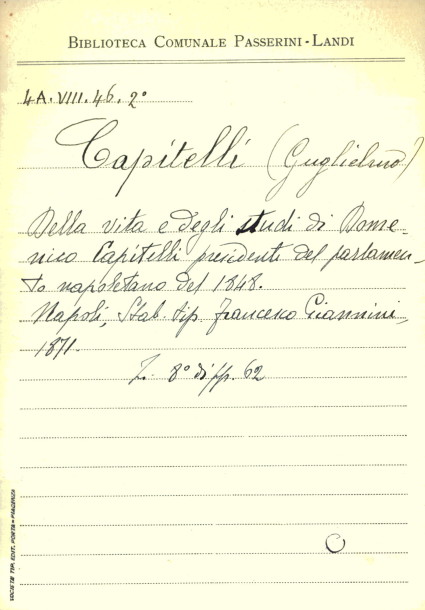 BIBLIOTECA COMUNALE PASSERINI-LANDI
4A.VIII.46.2°
Capitelli (Guglielmo)
Della vita e degli studi di Dome-
nico Capitelli presidente del parlamen-
to napoletano del 1848.
Napoli, Stab. tip. Francesco Giannini,
1871.
8° di pp. 62
SOCIETÀ TIP. EDIT. PORTA - PIACENZA